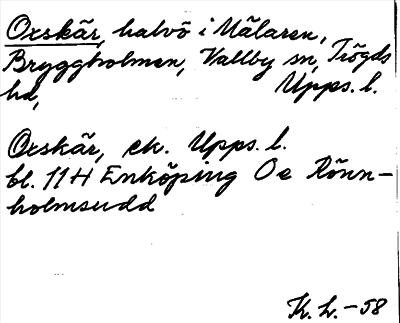 Oxskär, halvö i Mälaren,
Bryggholmen, Vallby sn, Trögds
hd, Upps. l.
Oxskär, ek. Upps. l.
bl. 11H Enköping Oe Rönn-
holmsudd
K. L. -58